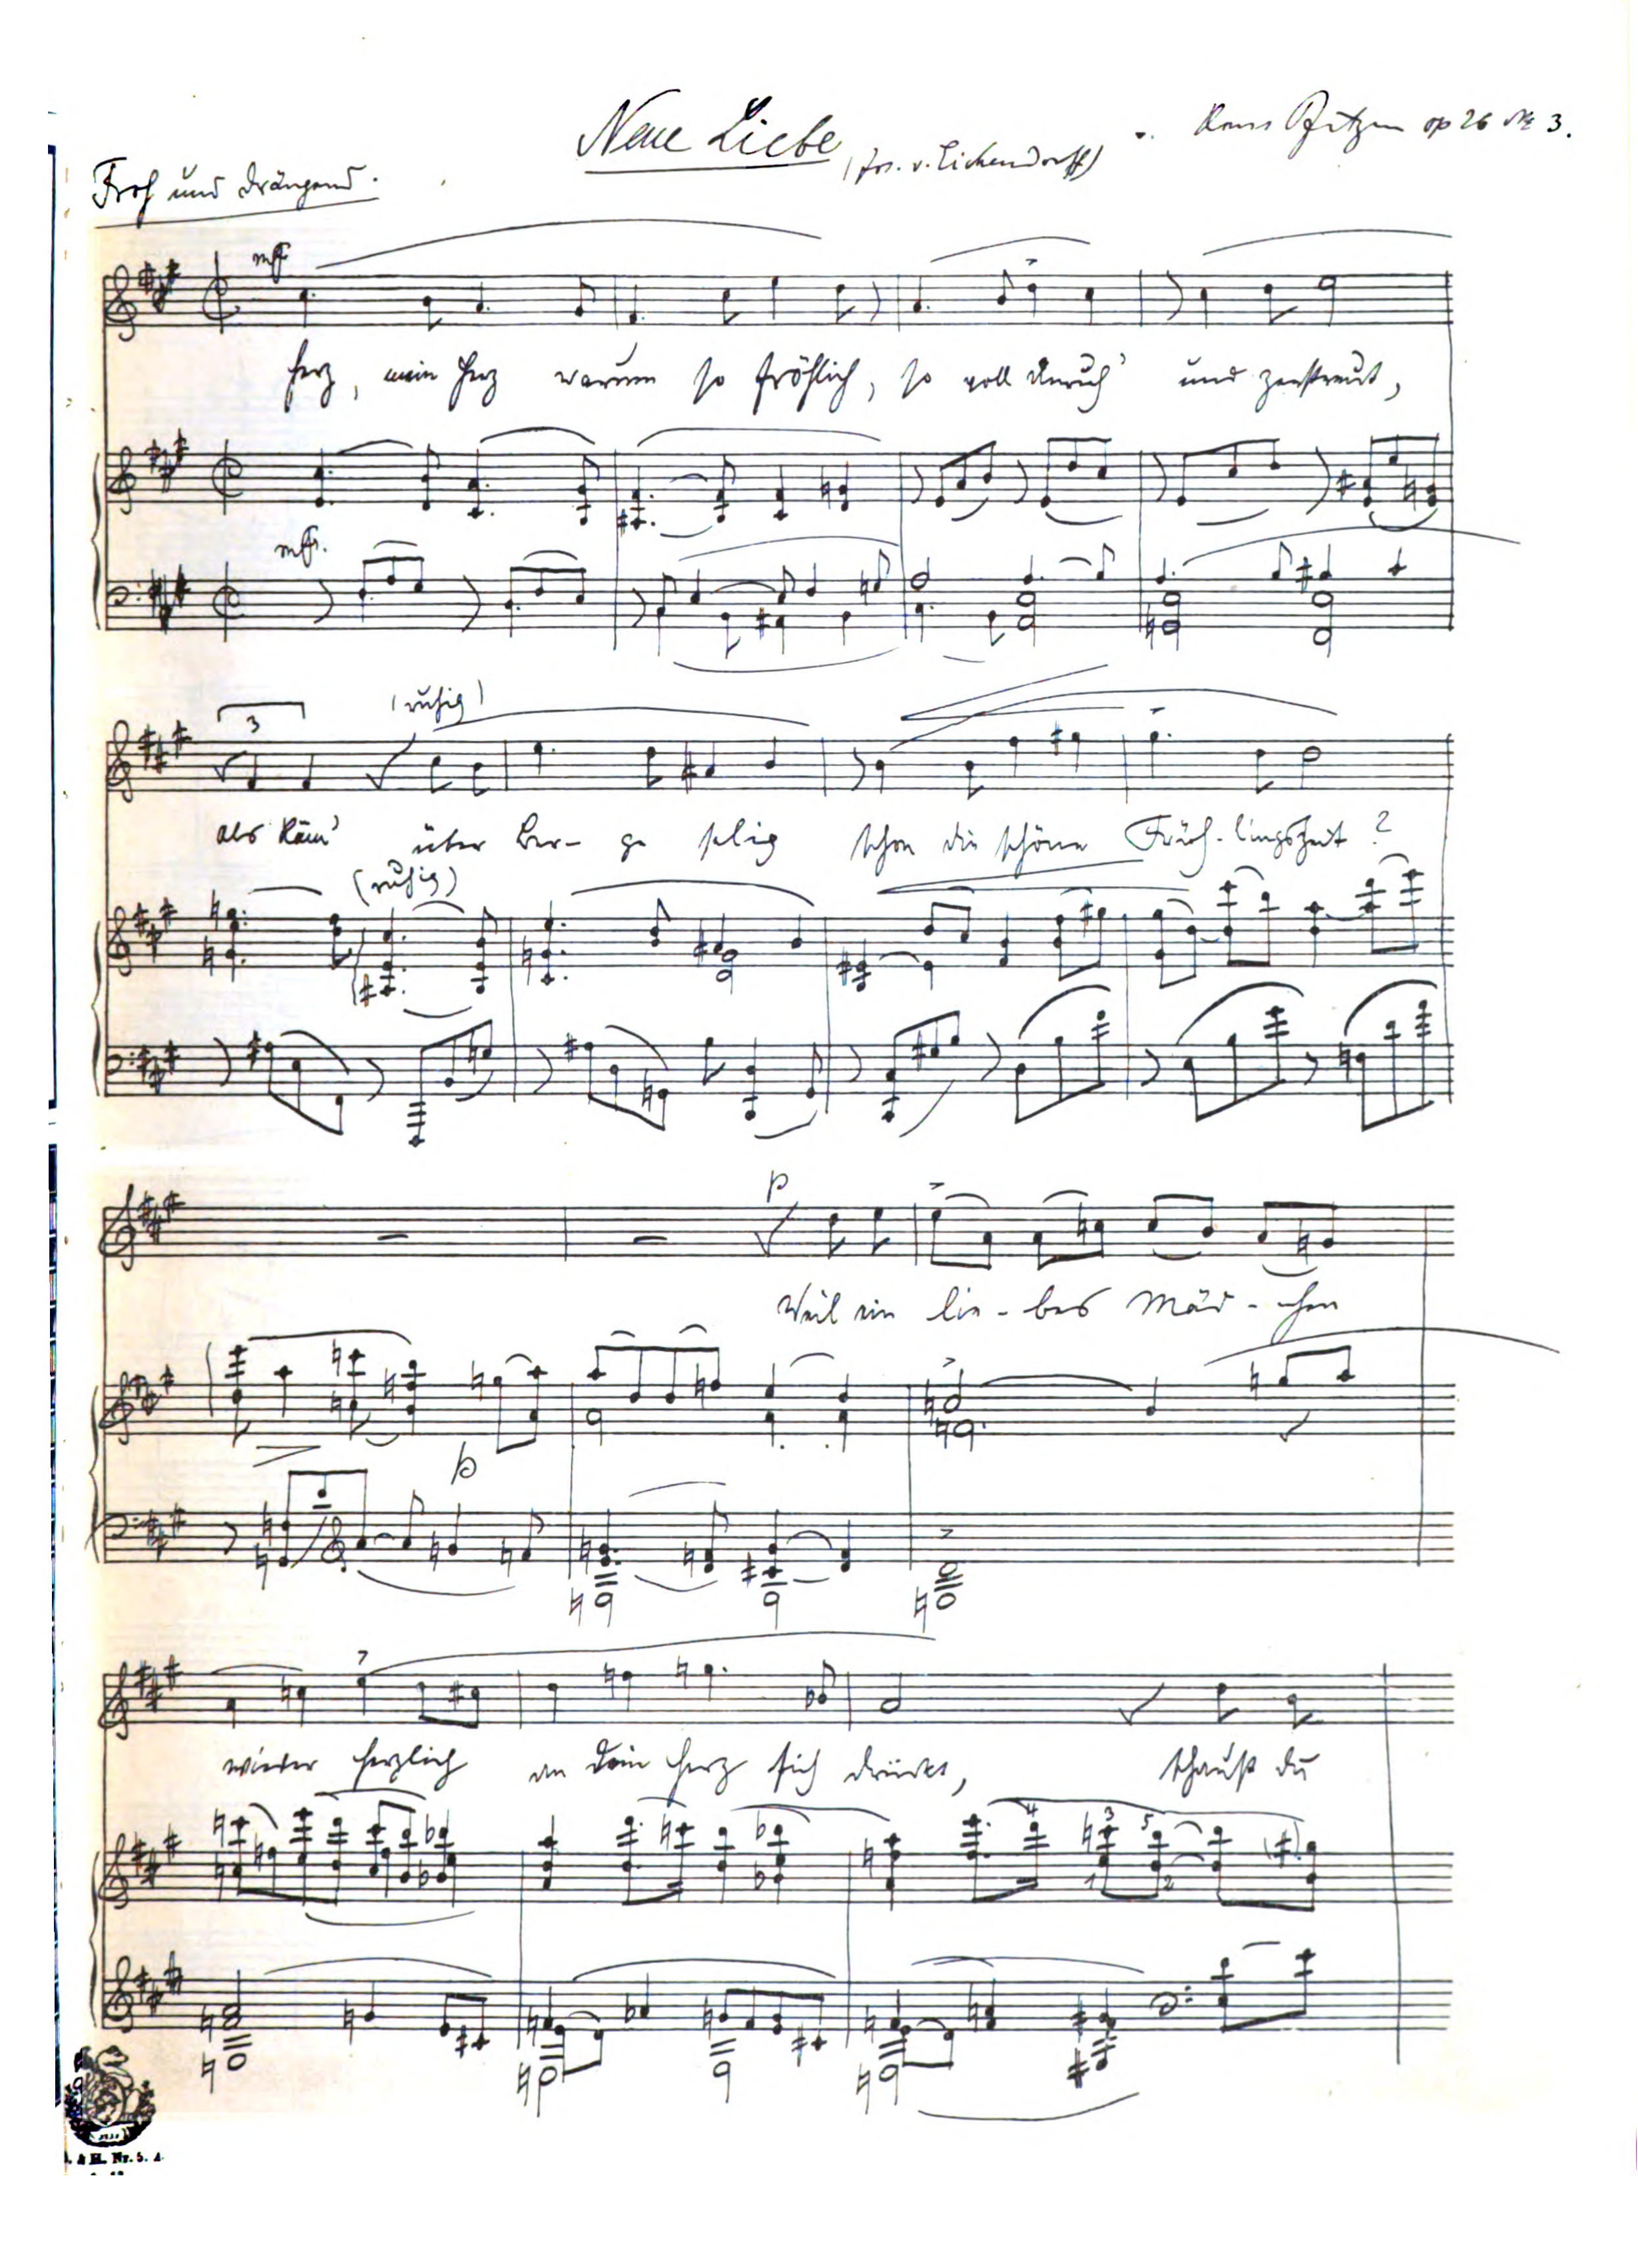 Neue Liebe
(Jos. v. Eichendorff)
Hans Pfitzner op 26 № 3.
Froh und drängend.
mf
Herz, mein Herz warum so fröhlich, so voll Unruh' und zerstreut,
mf.
3
(ruhig)
als käm' über Ber- ge selig schon die schöne Früh-lingszeit?
(ruhig)
p
Weil ein lie-bes Mäd-chen
p
wieder herzlich an dein Herz sich drückt, schaust du
4 3 5
1 2
& H. Nr. 5. A